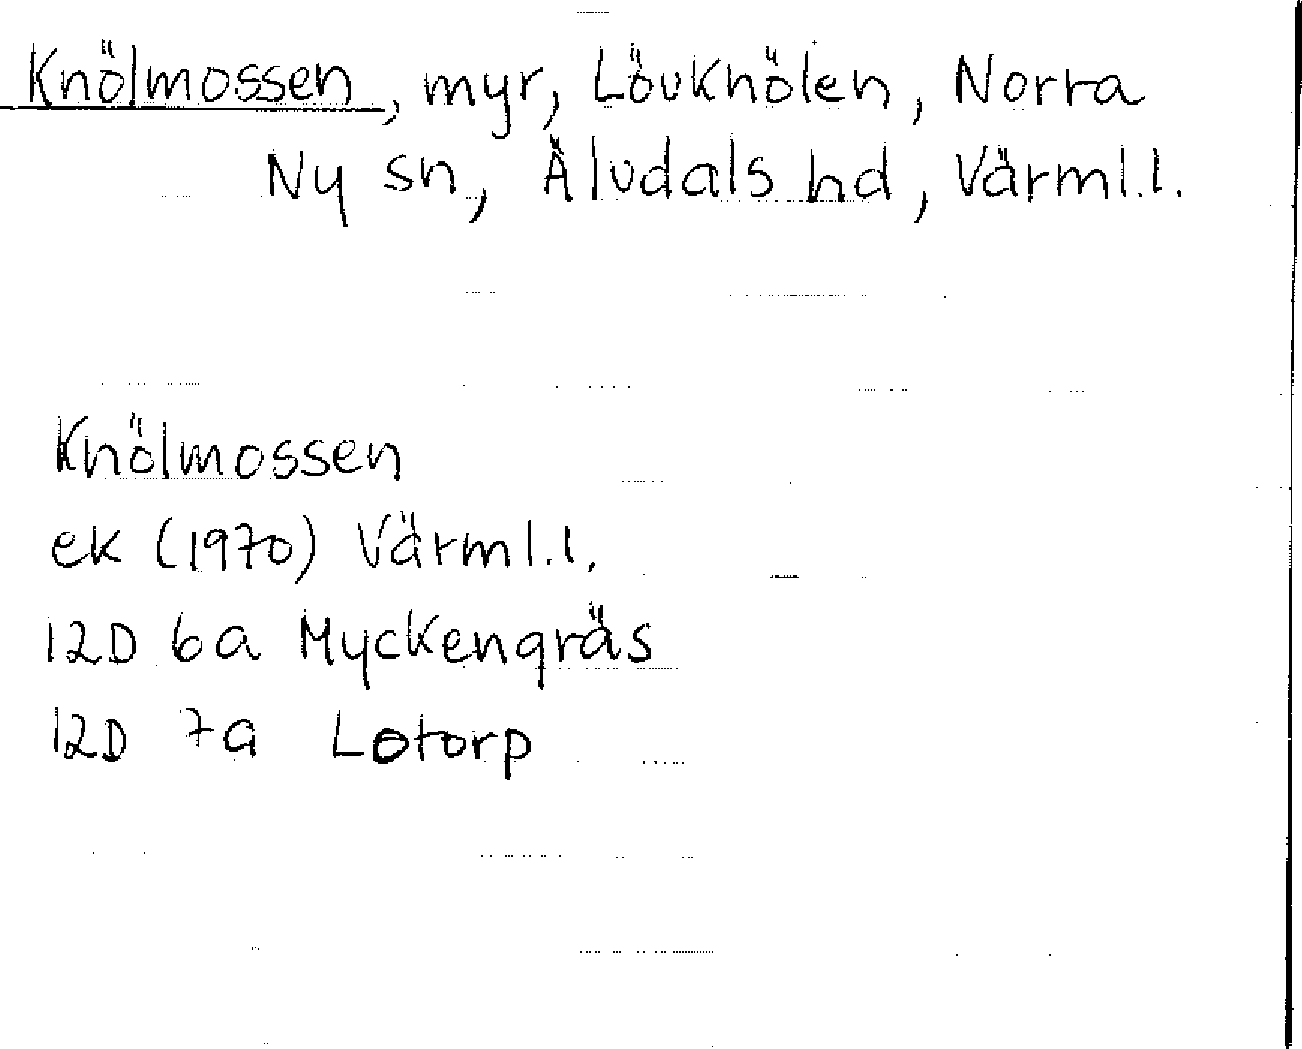 Knölmossen, myr, Lövknölen, Norra
Ny sn, Älvdals hd, Värml.l.
Knölmossen
ek (1970) Värml.l.
12D 6a Myckengräs
12D 7a Lotorp